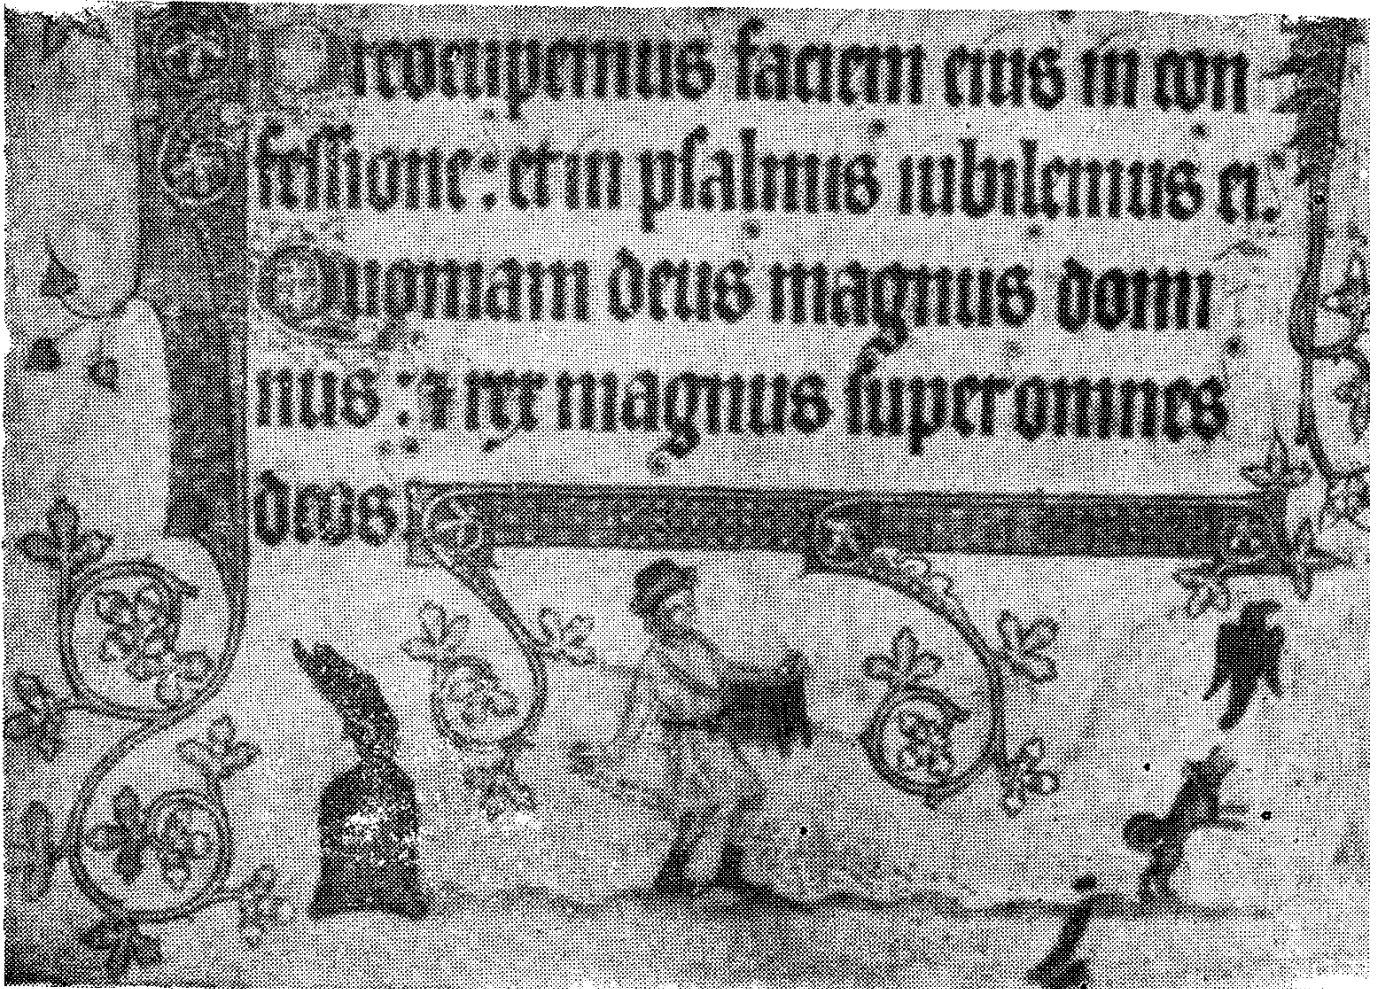 Preocupemus faciem eius in con
fessione: et in psalmis iubilemus ei.
Quoniam deus magnus domi
nus: et rex magnus super omnes
deos